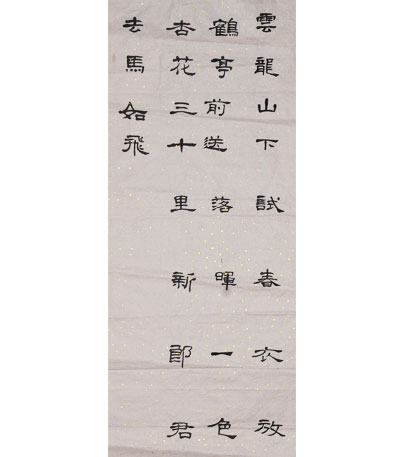 雲龍山下試春衣放
鶴亭前送落暉一色
杏花三十里新郎君
去馬如飛